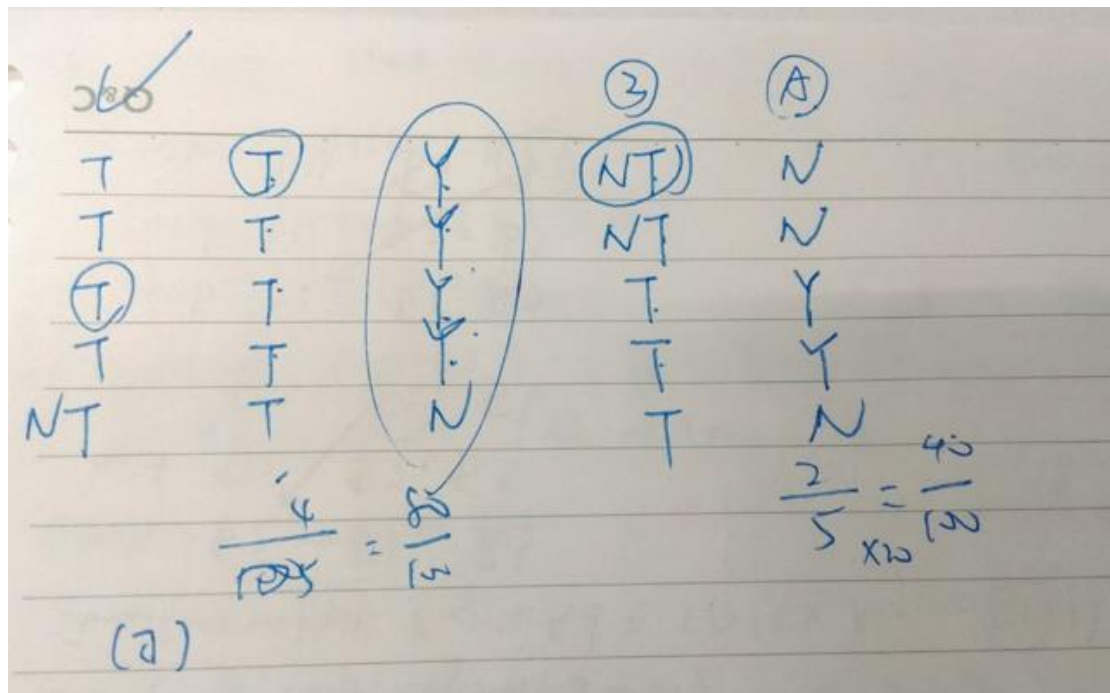 ③ Ⓐ
T T Y NT N
T T Y NT N
T T Y T Y
T T Y T Y
NT T N T N
4 = 80 2/5 = 40/100
×20